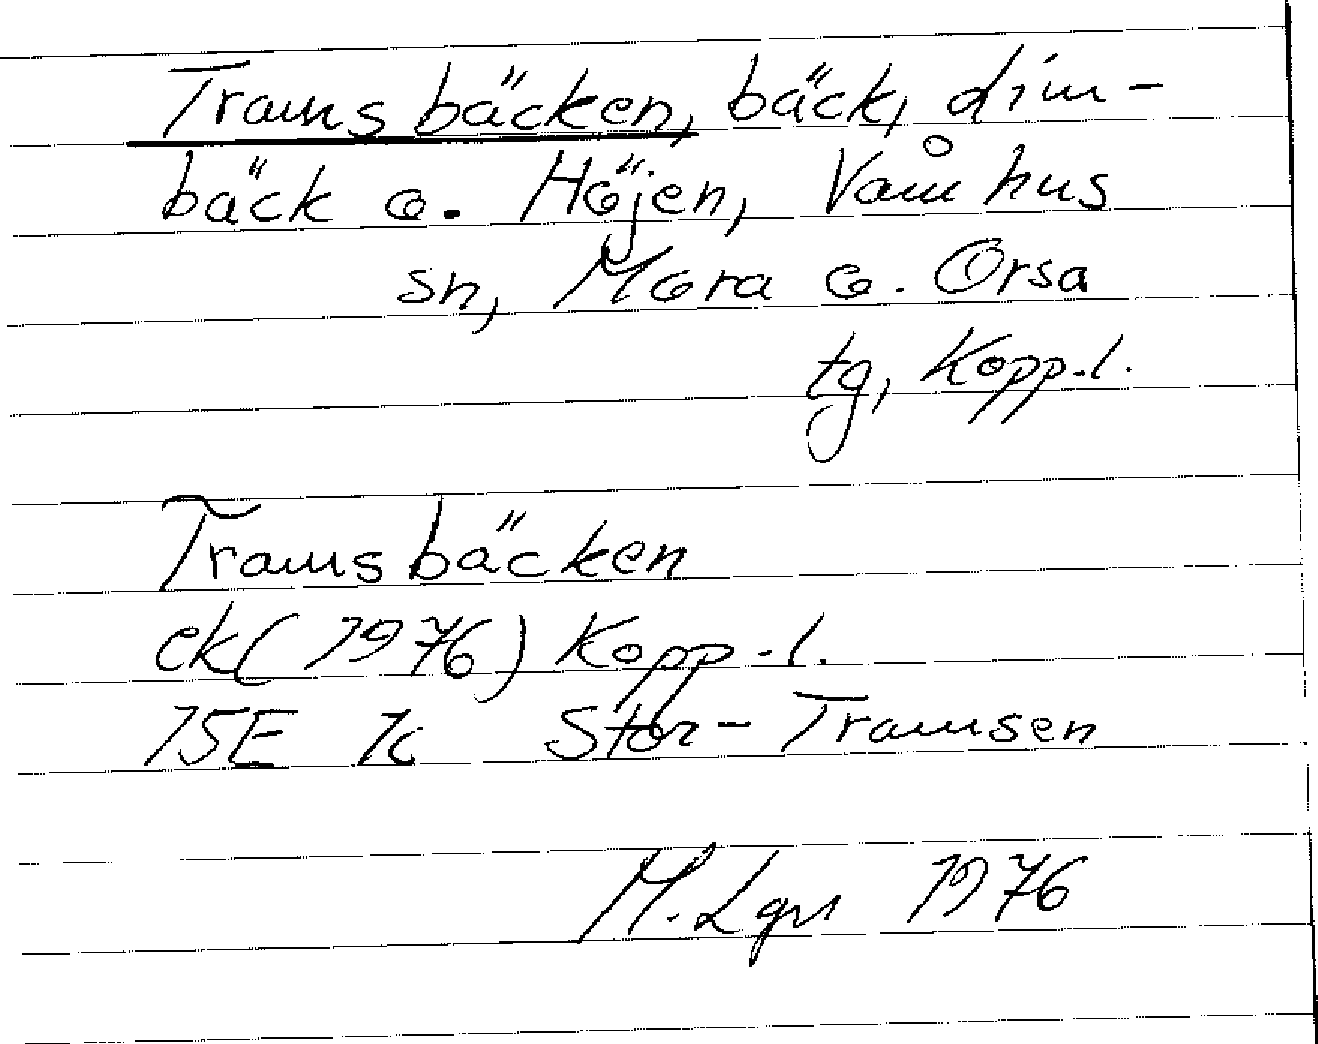 Tramsbäcken, bäck, dim-
bäck o. Höjen, Våmhus
sn, Mora o. Orsa
tg, Kopp.l.
Tramsbäcken
ek (1976) Kopp.l.
15E 1c Stor-Tramsen
M. Lgn 1976